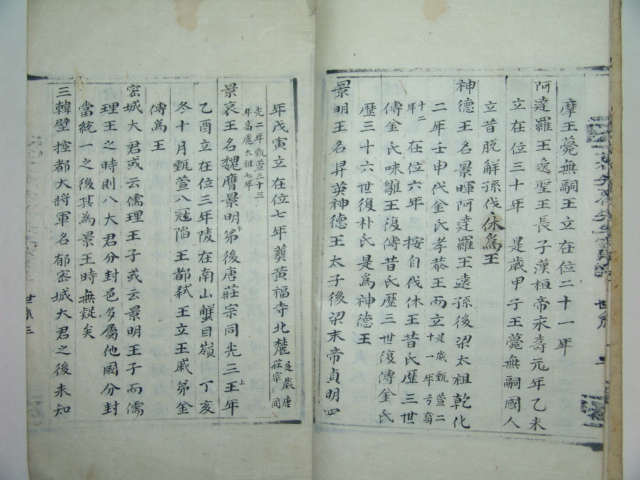 摩王薨無嗣王立在位二十一年
阿達羅王逸聖王長子漢桓帝永壽元年乙未
立在位三十年 是歲甲子王薨無嗣國人
立昔脫解孫伐休爲王
神德王名景暉阿達羅王遠孫後梁太祖乾化
二年壬申代金氏孝恭王而立是歲甄萱二十一年弓裔十二年在位六年 按自伐休王昔氏歷三世
傳金氏味鄒王復傳昔氏歷三世復傳金氏
歷三十六世復朴氏是爲神德王
景明王名昇英神德王太子後梁末帝貞明四
年戊寅立在位七年葬黃福寺北麓
元二年甄萱三十三年高麗太祖七年
景哀王名魏膺景明弟後唐莊宗同光三年
乙酉立在位三年陵在南山蟹目嶺 丁亥
冬十月甄萱入寇陷王都弑王立王戚弟金
傅爲王
密城大君或云儒理王子或云景明王子而儒
理王之時則八大君分封邑多屬他國分封
當統一之後其爲景王時無疑矣
三韓壁控都大將軍名郁密城大君之後未知
世系三